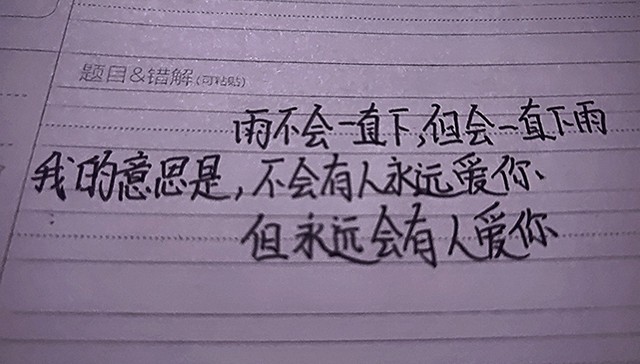 题目&错解(可粘贴)
雨不会一直下,但会一直下雨
我的意思是,不会有人永远爱你、
但永远会有人爱你